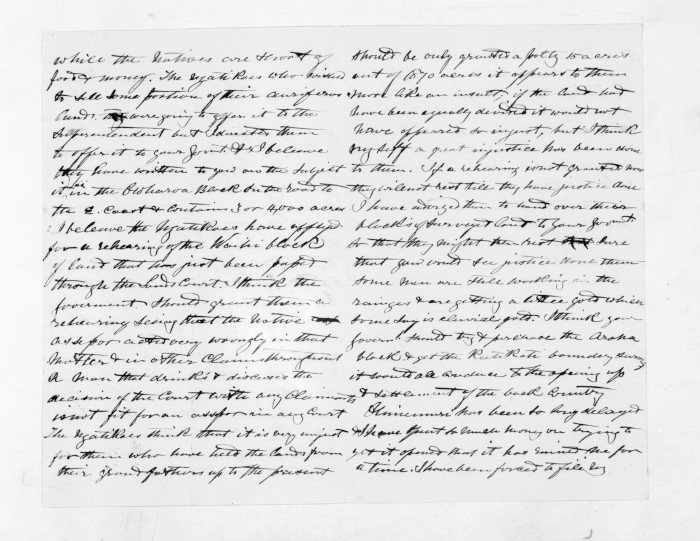 while the Natives are short of
food & money. The Ngatikoes who wished
to sell some portion of their auriferous
lands were going to offer it to the
Superentendent but I duested them
to offer it to your Joint. & I beleave
they have written to you on the subject
it is in the Block on the road to
the E. Coast & contains 3 or 4,000 acres
I beleave the Ngatikoes have applied
for a rehearing of the block
of land that has just been passed
through the Lands Court. I think the
Goverment should grant them a
rehearing seing that the Native
assessor acted very wrongly in that
matter & in other claims throughout
A man that drinks & discusses the
decision of the Court with any Claimants
is not fit for an assessor in any Court
The Ngatikoes think that it is very unjust
for them who have held the lands from
their grand fathers up to the present
should be only granted a paltry 10 acres
out of 1870 acres it appears to them
more like an insult, if the land had
have been equally devided it would not
have appeared so unjust, but I think
my self a great injustice has been done
to them. If a rehearing is not granted now
they will not rest till they have justice done
I have advized them to hand over their
blocks of surveyed land to your Joint.
so that they might then rest sure
that you would see justice done them
Some men are still working in the
ranges & are getting a little gold which
some say is eluvial gold. I think your
Goverm. should try & purchase the Aroha
block & get the Katikati boundary surveyed
it would all conduce to the opening up
& settlement of the back Country
Ohinemuri has been so long delayed
& I have spent so much money in trying to
get it opened that it has ruined me for
a time. I have been forced to file my